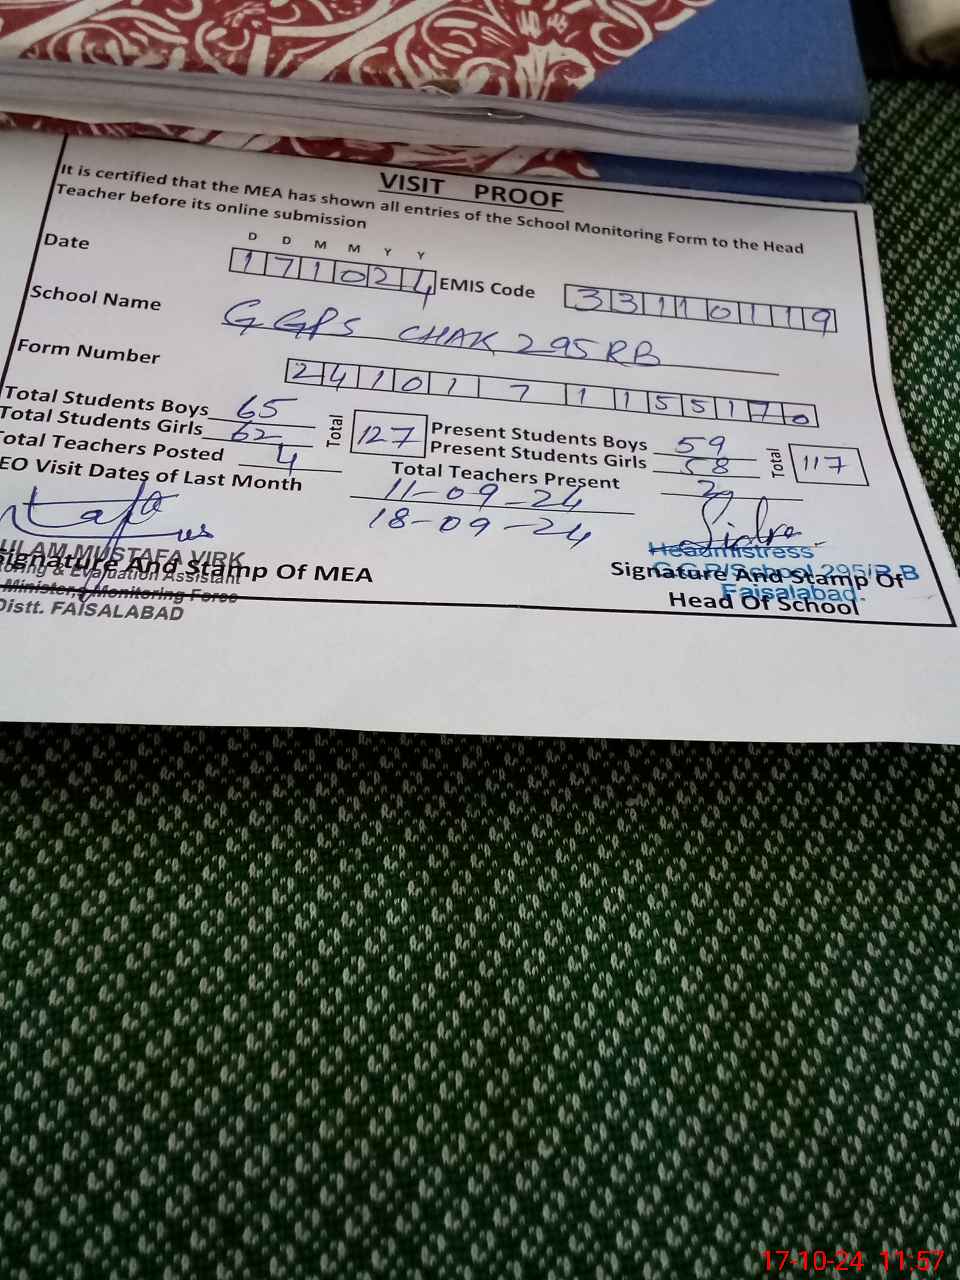 VISIT PROOF
It is certified that the MEA has shown all entries of the School Monitoring Form to the Head
Teacher before its online submission
D D M M Y Y
Date 171024 EMIS Code 33110119
School Name GGPS CHAK 295 RB
Form Number 2410171155170
Total Students Boys 65
Total Students Girls 62
Total 127
Present Students Boys 59
Present Students Girls 58
Total 117
Total Teachers Posted 4
Total Teachers Present
EO Visit Dates of Last Month 11-09-24
18-09-24
ULAM MUSTAFA VIRK
Signature And Stamp Of MEA
oring & Evaluation Assistant
Monitoring Force
Distt. FAISALABAD
Headmistress
G.G.P/School 295/R.B
Faisalabad.
Signature And Stamp Of
Head Of School
17-10-24 11:57